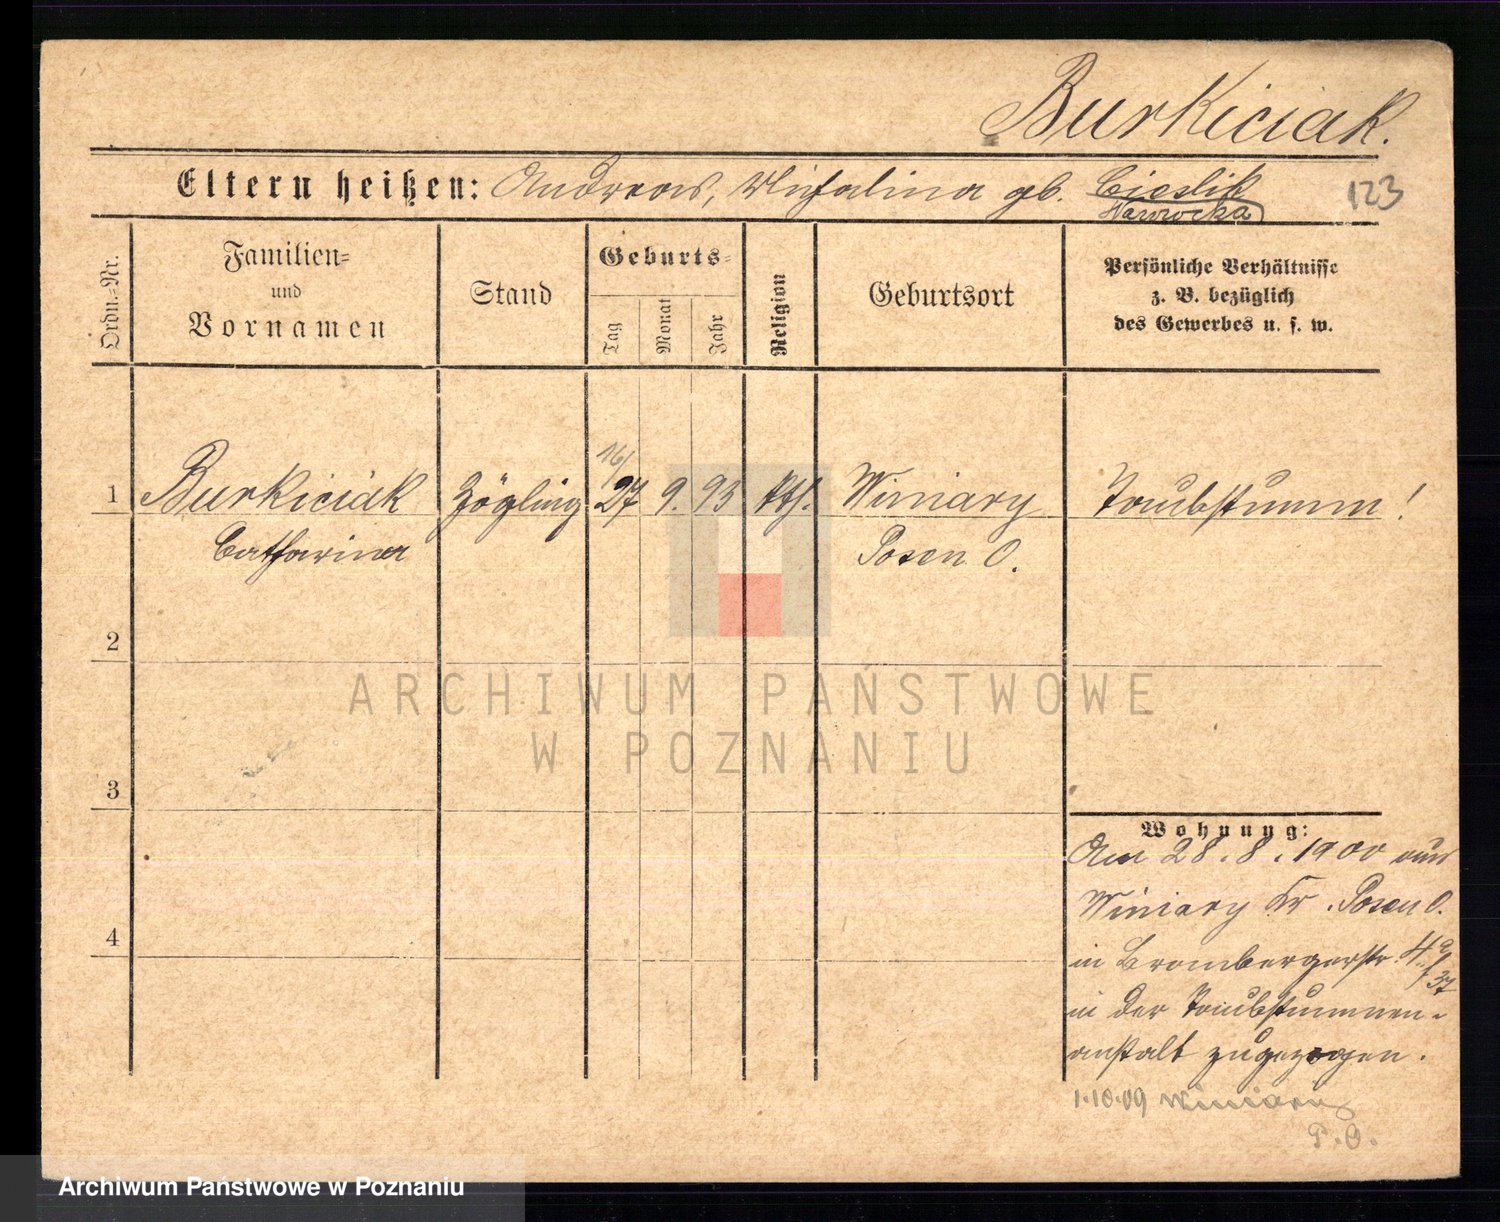 Burkiciak.
Eltern heißen: Andreas, Michalina gb. Cieslik
Nawrocka
123
Ordn.-Nr.
Familien-
und
Vornamen
Stand
Geburts-
Tag
Monat
Jahr
Religion
Geburtsort
Persönliche Verhältnisse
z. B. bezüglich
des Gewerbes u. s. w.
16/
1 Burkiciak Zögling 27 9. 93 kth. Winiary Taubstumm!
Catharina Posen O.
2
3
4
Wohnung:
Am 28.8.1900 aus
Winiary Kr. Posen O.
in Brombergerstr. 4a/37
in der Taubstummen-
anstalt zugezogen.
1.10.09 Winiary
P.O.
ARCHIWUM PAŃSTWOWE
W POZNANIU
Archiwum Państwowe w Poznaniu